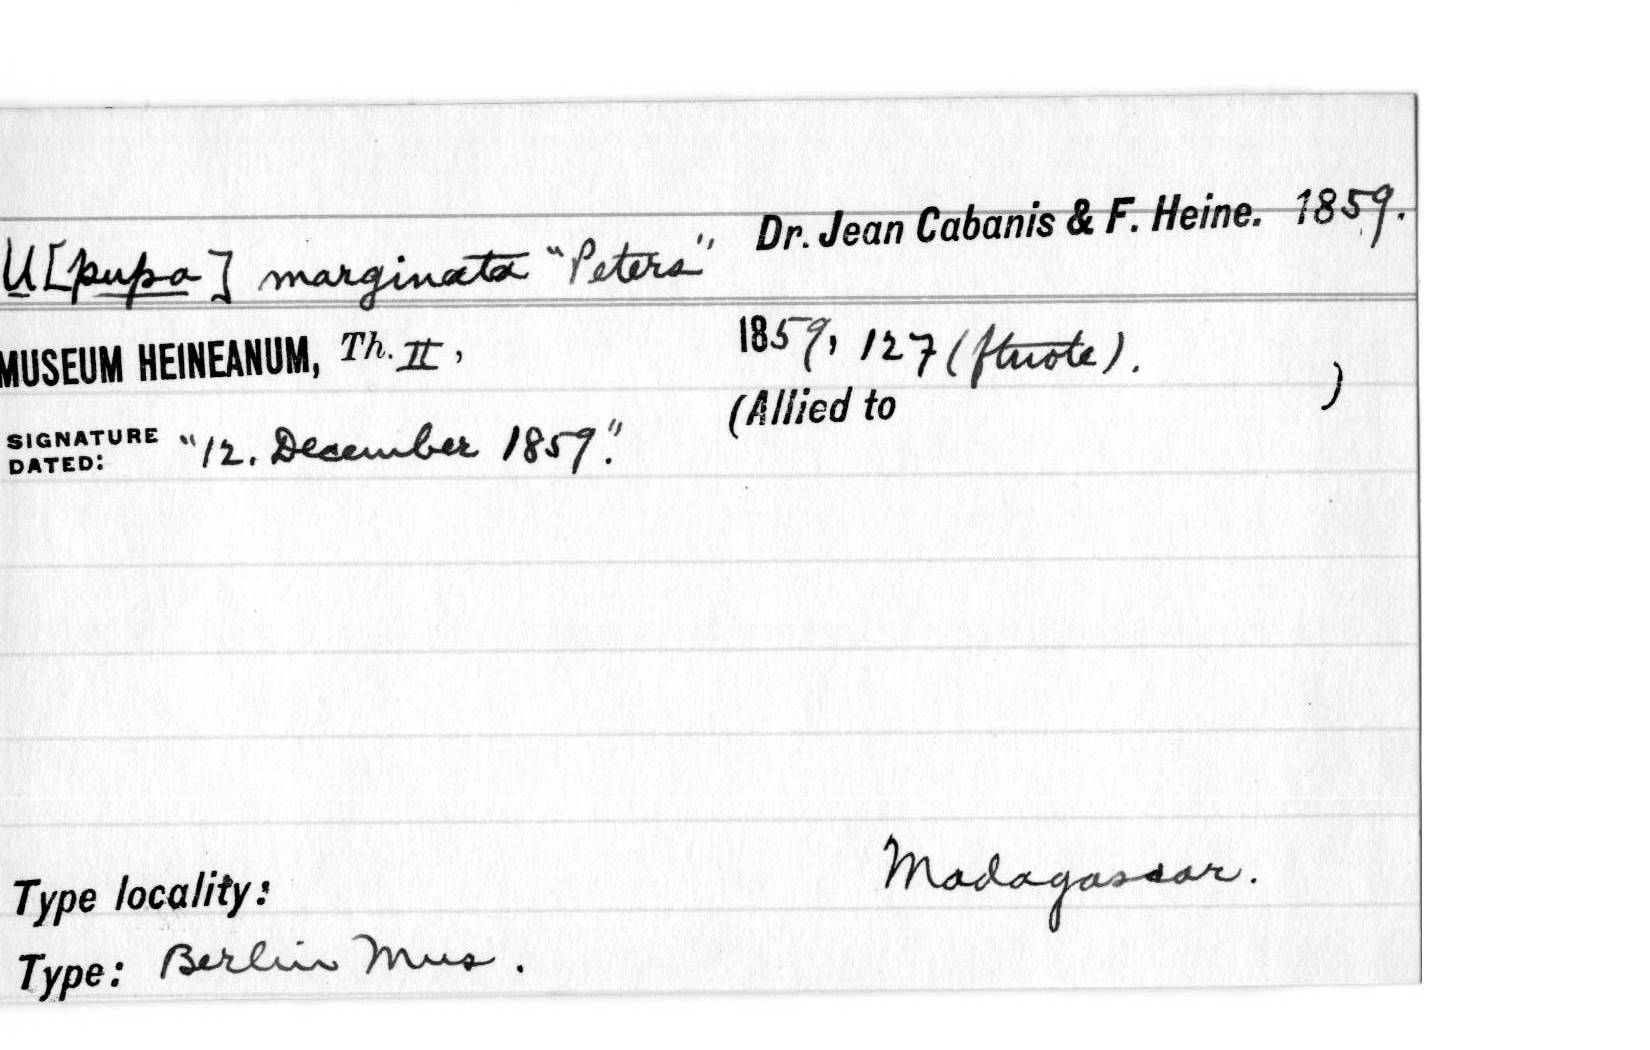 U[pupa] marginata "Peters" Dr. Jean Cabanis & F. Heine. 1859.
MUSEUM HEINEANUM, Th. II, 1859, 127 (ftnote).
(Allied to )
SIGNATURE DATED: "12. December 1859."
Type locality: Madagascar.
Type: Berlin Mus.